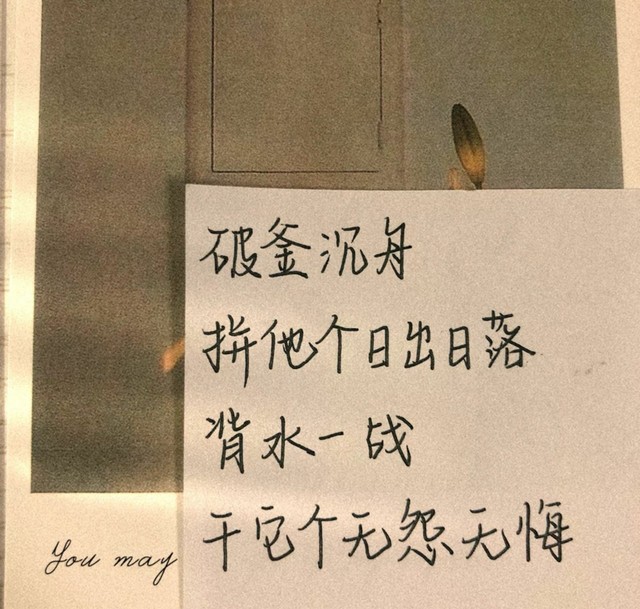 破釜沉舟
拼他个日出日落
背水一战
干它个无怨无悔
You may